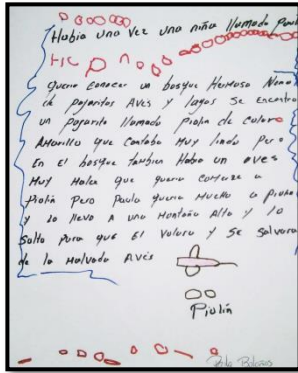 Habia una vez una niña llamada Paula
Queria conocer un bosque Hermoso lleno
de pajaritos Aves y lagos Se encontro
un pajarito llamado Piolin de Coloro
AMarillo que Cantaba Muy lindo Pero
En El bosque tambien Habia un aves
Muy Malea que queria comerze a
Piolin Pero Paula queria Mucho a Piolin
y lo llevo a una Montaña Alta y lo
Solto para que El Volara y Se Salvara
de la Malvada Aves
Piolin